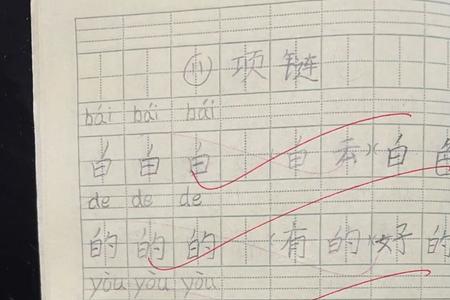 ⑪ 项链
bái bái bái
白 白 白 (白 云)(白
de de de
的 的 的 (有 的)(好 的
yòu yòu yòu